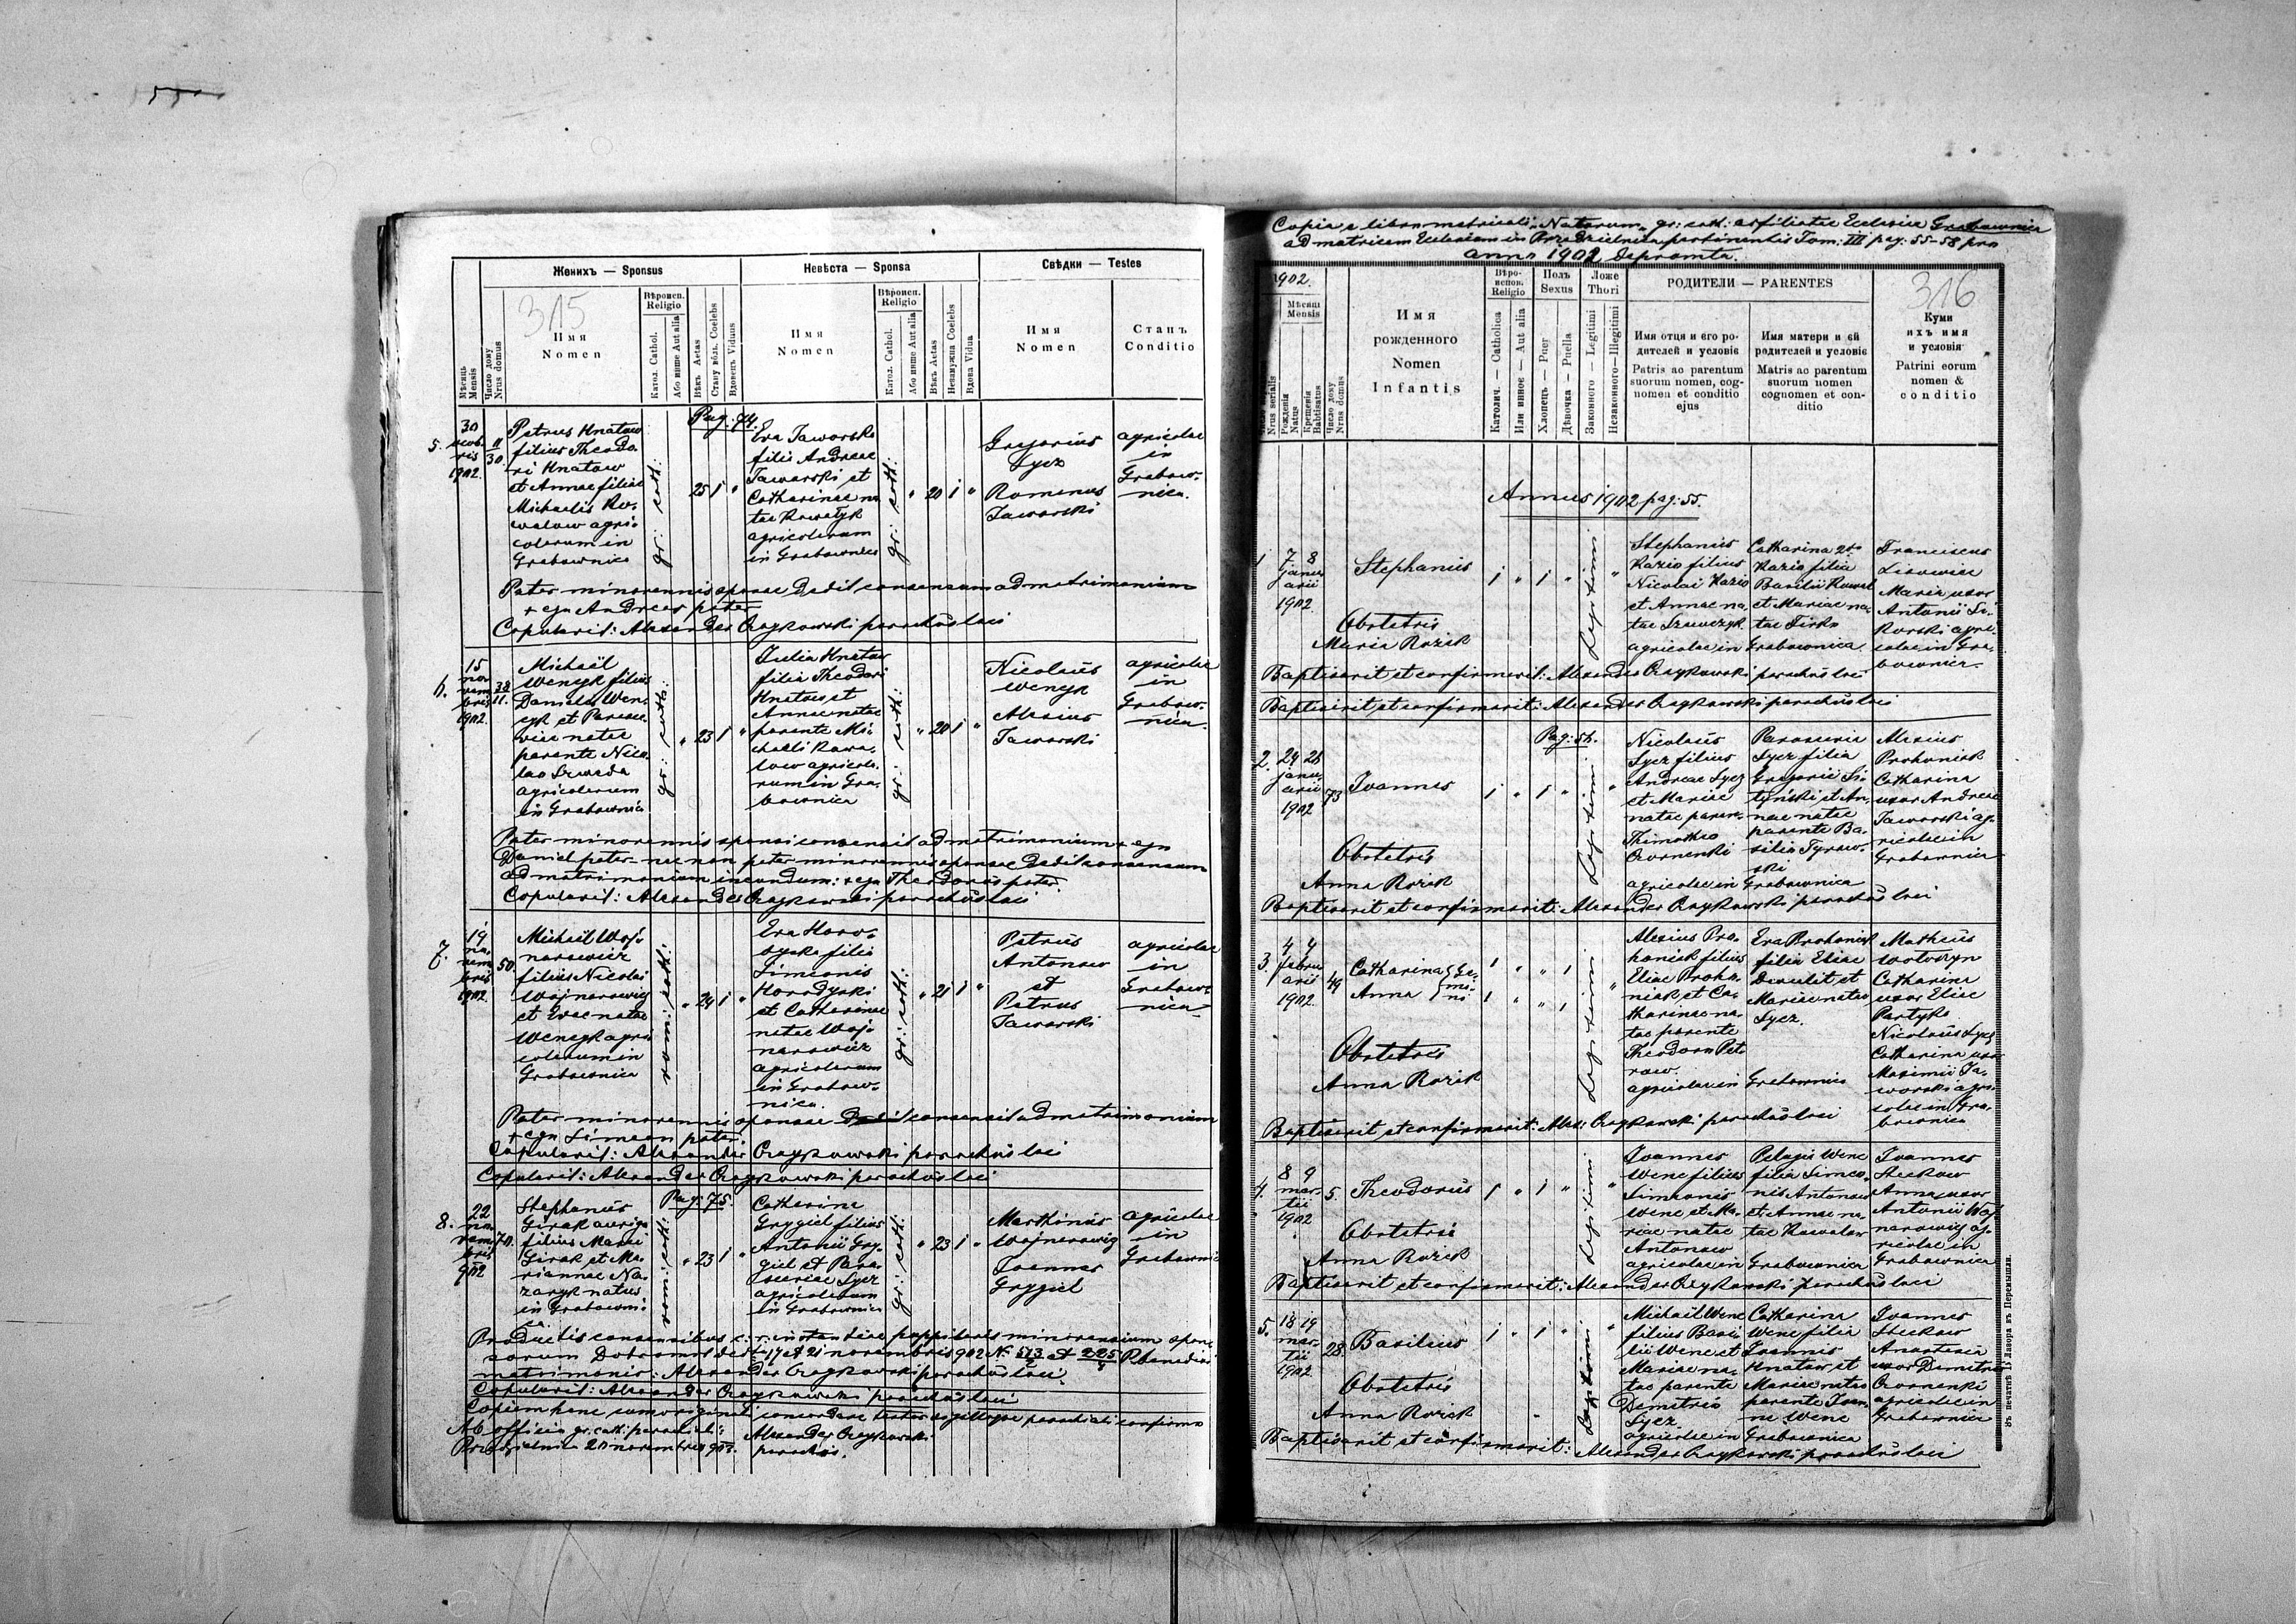 315
Женихъ — Sponsus
Невѣста — Sponsa
Свѣдки — Testes
Мѣсяць Mensis
Число дому Nrus domus
Имя
Nomen
Вѣроисп.
Religio
Катол. Cathol.
Або инше Aut alia
Вѣкъ Aetas
Стану вольн. Coelebs
Вдовецъ Viduus
Имя
Nomen
Вѣроисп.
Religio
Катол. Cathol.
Або инше Aut alia
Вѣкъ Aetas
Незамужна Coelebs
Вдова Vidua
Имя
Nomen
Станъ
Conditio
Pag: 74.
5.
30
1902.
11
30.
Petrus Hnatow
filius Theodo-
ri Hnatow
et Annae filiae
Michaelis Ko-
walow agri-
colarum in
Grabownica
gr: cath:
25 1 "
Eva Jaworska
filia Andreae
Jaworski et
Catharinae na
tae Kowalyk
agricolarum
in Grabownica
gr: cath:
" 20 1 "
Gregorius
Sycz
Romanus
Jaworski
agricolae
in
Grabow-
nica.
Pater minorennis sponsae dedit consensum ad matrimonium
+ cyu Andreas pater
Copulavit: Alexander Czajkowski parochus loci
6.
15
no
vem
bris
1902.
38
11.
Michaël
Wencyk filius
Danielis Wen-
cyk et Parasce
viae natae
parente Nico-
lao Szweda
agricolarum
in Grabownica
gr: cath:
" 23 1 "
Julia Hnatow
filia Theodori
Hnatow et
Annae natae
parente Mi-
chaeli Kowa-
low agricola-
rum in Gra-
bownica
gr: cath:
" 20 1 "
Nicolaus
Wencyk
Alexius
Jaworski
agricolae
in
Grabow-
nica
Pater minorennis sponsi consensit ad matrimonium + cyu
Daniel pater - nec non pater minorennis sponsae dedit consensum
ad matrimonium ineundum: + cyu Theodorus pater.
Copulavit: Alexander Czajkowski parochus loci
7.
19
no-
vem
bris
1902.
50.
Michaël Woj-
narowicz
filius Nicolai
Wojnarowicz
et Evae natae
Wencyk agri
colarum in
Grabownica
rom: cath:
" 24 1 "
Eva Horo-
dyska filia
Simeonis
Horodyski
et Catharinae
natae Woj-
narowicz
agricolarum
in Grabow-
nica.
gr: cath:
" 21 1 "
Petrus
Antonow
et
Petrus
Jaworski
agricolae
in
Grabow-
nica
Pater minorennis sponsae consensit ad matrimonium
+ cyu Simeon pater.
Copulavit: Alexander Czajkowski parochus loci
Copulavit: Alexander Czajkowski parochus loci
Pag: 75.
8.
22
no-
vem
bris
902
70.
Stephanus
Girak auriga
filius Mariae
Girak et Ma-
riannae Na-
zaryk natus
in Grabowni-
ca.
rom: cath:
" 23 1 "
Catharina
Grygiel filius
Antonii Gry-
giel et Para-
sceviae Sycz
agricolarum
in Grabownica
gr: cath:
" 23 1 "
Marthinus
Wojnarowicz
Joannes
Grygiel
agricolae
in
Grabownica
Productis consensibus c: r: instantiae puppilaris minorennium spon
sorum Dobromil ddto 17 et 21 novembris 902 N: 513 et
matrimonio: Alexander Czajkowski parochus loci.
Copulavit: Alexander Czajkowski parochus loci
Copiam hanc cum originali concordare testor sigilloque parochiali confirmo
Ab officio gr: cath: parochiali:
Alexander Czajkowski
parochus.
316
Copia e libro matricali "Natorum" gr: cath: affiliatae Ecclesiae Grabownica
ad matricem Ecclesiam in pertinentis Tom: III pag: 55-58 pro
anno 1902 depromta.
1902.
Nrus serialis
Мѣсяць
Mensis
Рожденія Natus
Крещенія Babtisatus
Число дому Nrus domus
Имя
рожденного
Nomen
Infantis
Вѣро-
испов.
Religio
Католич. — Catholica
Или инное — Aut alia
Полъ
Sexus
Хлопець — Puer
Дѣвочка — Puella
Ложе
Thori
Законного — Legitimi
Незаконного — Illegitimi
РОДИТЕЛИ — PARENTES
Имя отця и его ро-
дителей и условіє
Patris ac parentum
suorum nomen, cog-
nomen et conditio
ejus
Имя матери и єй
родителей и условіє
Matris ac parentum
suorum nomen
cognomen et con-
ditio
Куми
ихъ имя
и условія
Patrini eorum
nomen &
conditio
Annus 1902 pag: 55.
1
7 8
janu
arii
1902.
Stephanus
Obstetrix
Maria Rozik
1 " 1 "
legitimi
"
Stephanus
Kazio filius
Nicolai Kazio
et Annae na-
tae Szewczyk
agricolae in Grabownica
Catharina
Kazio filia
Basilii Kowal
et Mariae na-
tae Firko
Franciscus
Lisowicz
Maria uxor
Antonii Si-
korski agri-
colae in Gra-
bownica
Baptisavit et confirmavit: Alexander Czajkowski parochus loci
Baptisavit et confirmavit: Alexander Czajkowski parochus loci
Pag: 56.
2.
24 26
janu
arii
1902
73
Joannes
Obstetrix
Anna Rozik
1 " 1 "
legitimi
"
Nicolaus
Sycz filius
Andreae Sycz
et Mariae
natae paren-
Thimotheo
Czornenki
agricolae in Grabownica
Parascevia
Sycz filia
Gregorii Si-
tyński et An-
nae natae
parente Ba-
silio Tyrow-
ski
Alexius
Prohoniak
Catharina
uxor Andreae
Jaworski ag-
ricolae in
Grabownica
Baptisavit et confirmavit: Alexander Czajkowski parochus loci
3.
4 4
febru
arii
1902
49
Catharina
Anna
ge
mi-
ni
Obstetrix
Anna Rozik
1 " " 1
1 " " 1
legitimi
"
Alexius Pro-
honiak filius
Eliae Proho-
niak et Ca-
tharinae na-
tae parente
Theodoro Pet-
row.
agricolae in Grabownica
Eva Prohoniak
filia Eliae
et
Mariae natae
Sycz.
Matheus
Wołoszyn
Catharina
uxor Eliae
Partyka
Nicolaus Sycz
Catharina uxor
Maximi Ja-
worski agri-
colae in Gra-
bownica
Baptisavit et confirmavit: Alex: Czajkowski parochus loci
4.
8 9
mar-
tii
1902
5.
Theodorus
Obstetrix
Anna Rozik
1 " 1 "
legitimi
"
Joannes
Wenc filius
Simeonis
Wenc et Ma-
riae natae
Antonow
agricolae in Grabownica
Pelagia Wenc
filia Simeo-
nis Antonow
et Annae na
tae Kowalow
Joannes
Steckow
Anna uxor
Antonii Woj-
narowicz ag-
ricolae in
Grabownica
Baptisavit et confirmavit: Alexander Czajkowski parochus loci
5.
18 19
mar-
tii
1902
23.
Basilius
Obstetrix
Anna Rozik
1 " 1 "
legitimi
"
Michaël Wenc
filius Basi-
lii Wenc et
Mariae na-
tae parente
Demetrio
Sycz
agricolae in Grabownica
Catharina
Wenc filia
Joannis
Hnatow et
Mariae natae
parente Joan-
ne Wenc
Joannes
Steckow
Anastasia
uxor Demitrii
Czornenki
agricolae in
Grabownica
Baptisavit et confirmavit: Alexander Czajkowski parochus loci